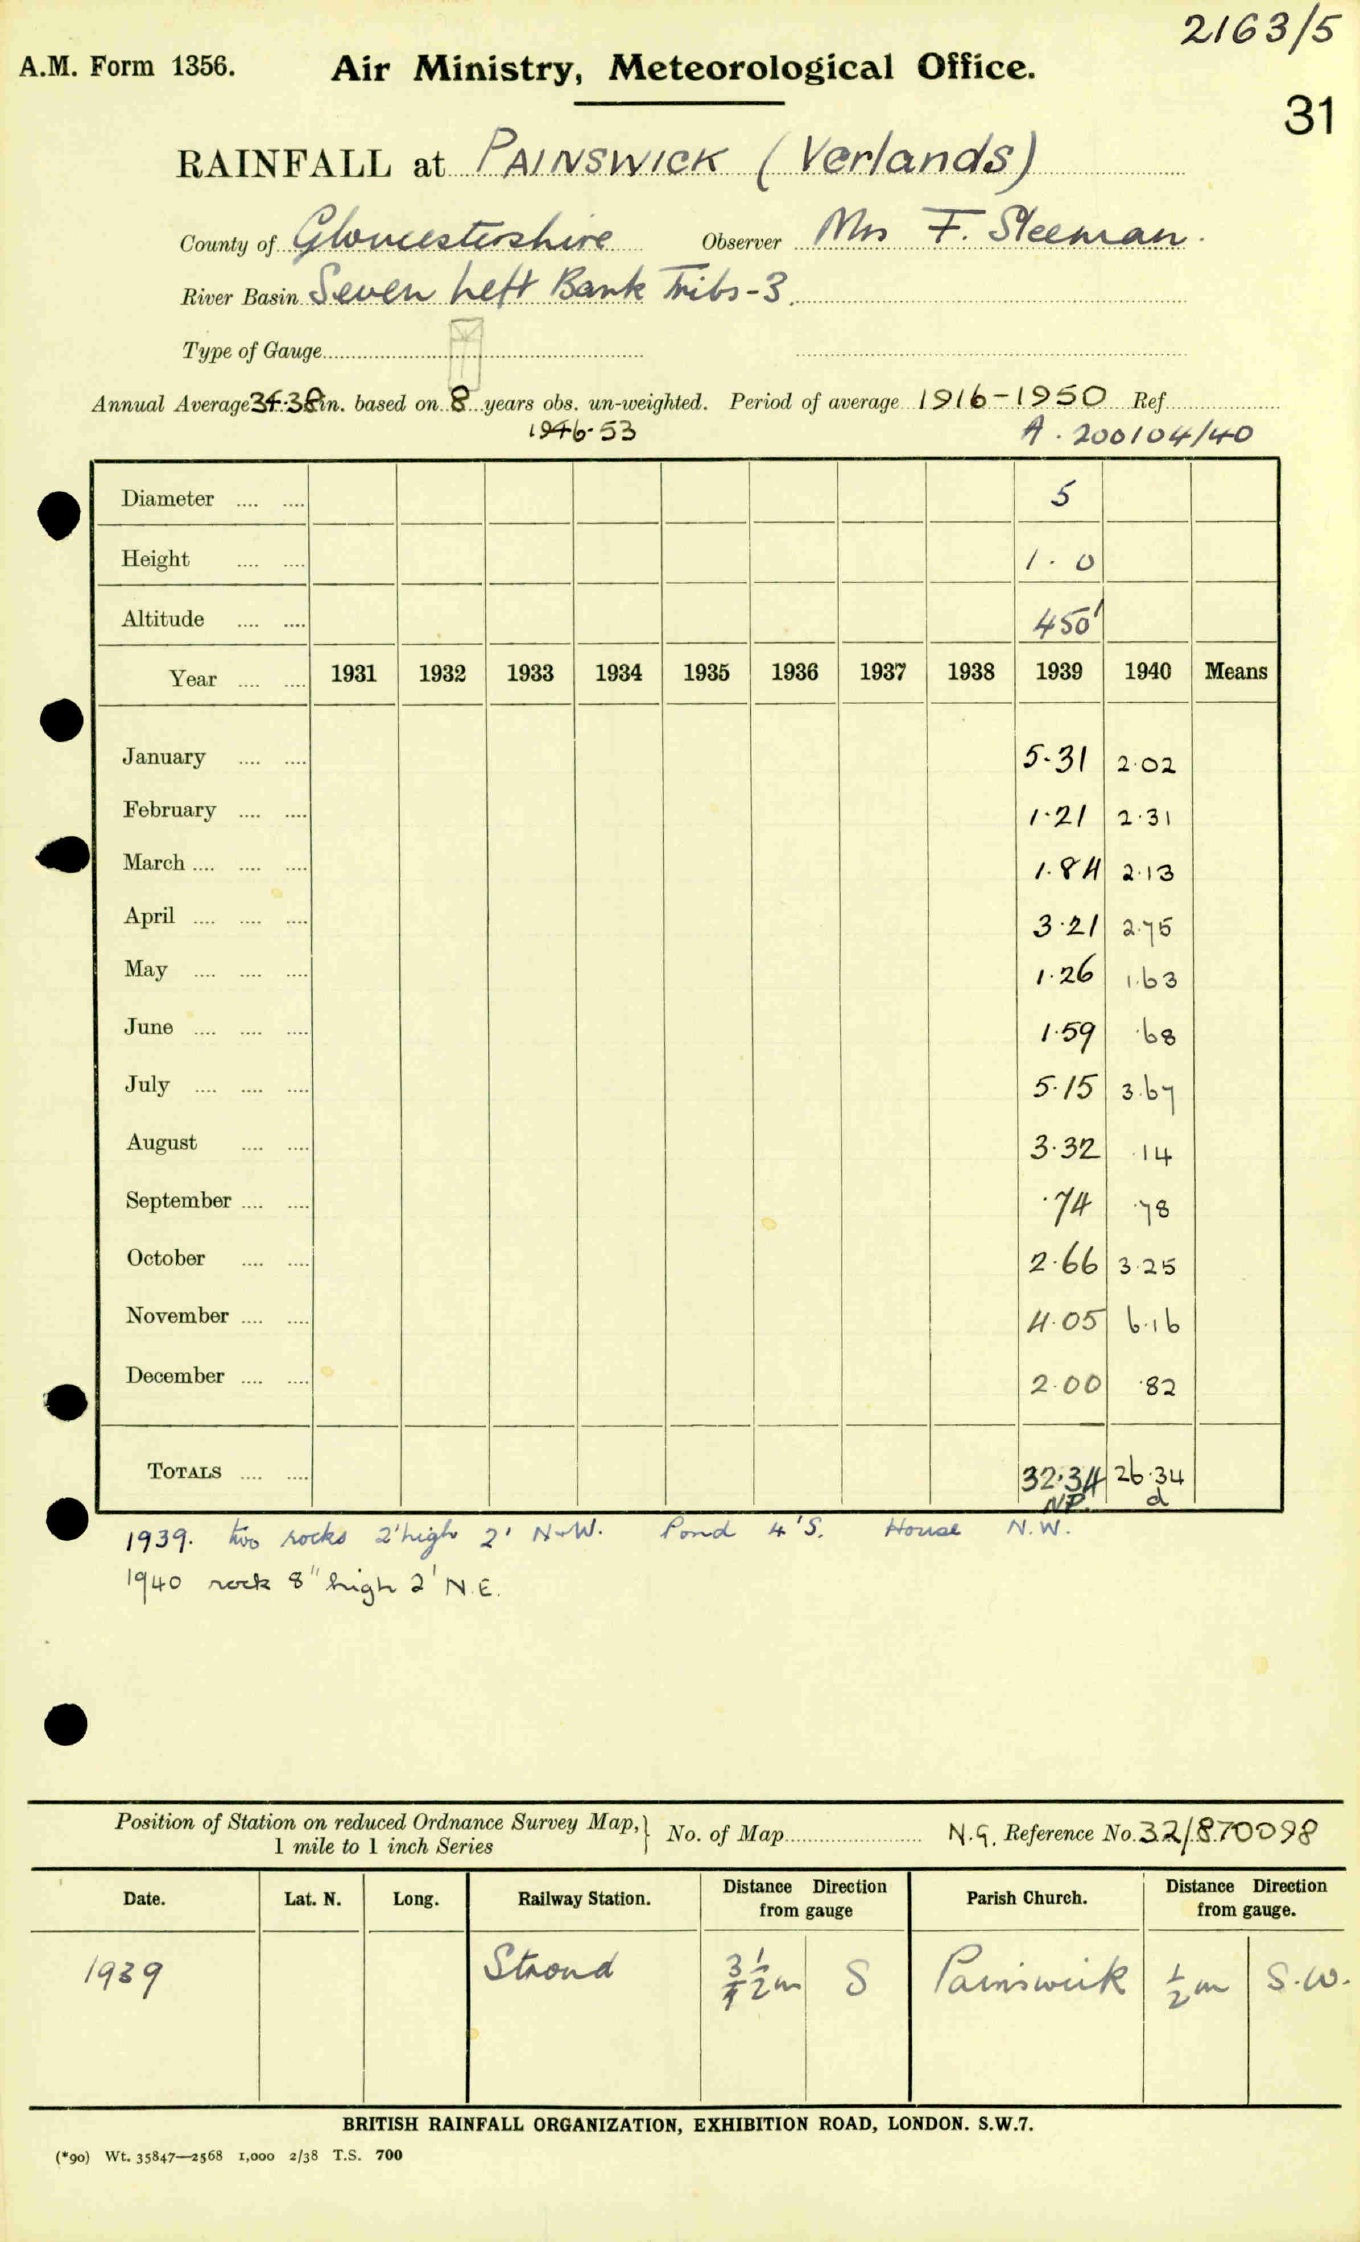 2163/5
A.M. Form 1356. Air Ministry, Meteorological Office.
31
RAINFALL at PAINSWICK (Verlands)
County of Gloucestershire Observer Mrs F. Sleeman.
River Basin Seven Left Bank Tribs-3.
Type of Gauge
Annual Average in. based on 8 years obs. un-weighted. Period of average 1916-1950 Ref
1946-53 A. 200104/40
Diameter .... .... 5
Height .... .... 1. 0
Altitude .... .... 450'
Year .... .... 1931 1932 1933 1934 1935 1936 1937 1938 1939 1940 Means
January .... .... 5.31 2.02
February .... .... 1.21 2.31
March .... .... .... 1.84 2.13
April .... .... .... 3.21 2.75
May .... .... .... 1.26 1.63
June .... .... .... 1.59 .68
July .... .... .... 5.15 3.67
August .... .... 3.32 .14
September .... .... .74 .78
October .... .... 2.66 3.25
November .... .... 4.05 6.16
December .... .... 2.00 .82
TOTALS .... .... 32.34 26.34
NP. d
1939. two rocks 2' high 2' N+W. Pond 4'S. House N.W.
1940 rock 8" high 2' N.E.
Position of Station on reduced Ordnance Survey Map,} No. of Map N.G. Reference No. 32/870098
1 mile to 1 inch Series
Date. Lat. N. Long. Railway Station. Distance Direction from gauge Parish Church. Distance Direction from gauge.
1939 Stroud 3 1/2 m S Painswick 1/2 m S.W.
BRITISH RAINFALL ORGANIZATION, EXHIBITION ROAD, LONDON. S.W.7.
(*90) Wt. 35847—2568 1,000 2/38 T.S. 700